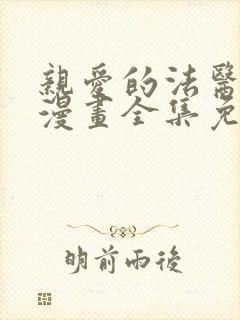 親愛的法醫
漫畫全集免
明前雨後